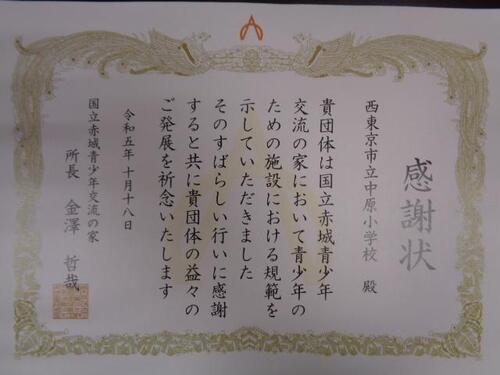 感謝状
西東京市立中原小学校 殿
貴団体は国立赤城青少年
交流の家において青少年の
ための施設における規範を
示していただきました
そのすばらしい行いに感謝
すると共に貴団体の益々の
ご発展を祈念いたします
令和五年 十月十八日
国立赤城青少年交流の家
所長 金澤 哲哉